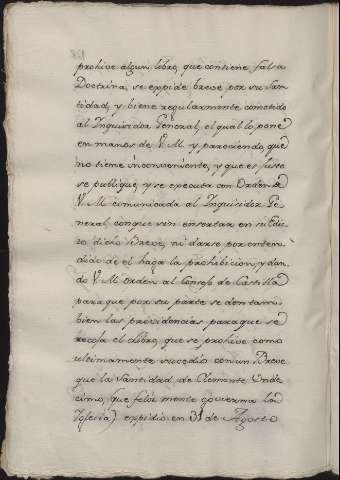 prohive algun libro, que contiene falsa
Doctrina, se expide breve por su San-
tidad, y biene regularmente cometido
al Inquisidor General, el qual lo pone
en manos de V. M. y pareciendo, que
no tiene inconveniente, y que es justo
se publique, y se executa con Orden de
V. M. comunicada al Inquisidor Ge-
neral, conque sin ensertar en su Edic-
to dicho Breve, ni darse por enten-
dido de el haga la prohibicion, y dan-
do V. M. orden al Consejo de Castilla
para que por su parte se den tam-
bien las providencias para que se
recoja el Libro, que se prohive como
ultimamente sucedio con un Breve
que la Santidad de Clemente Unde-
cimo, (que felizmente govierna la
Iglesia) expidio en 31 de Agosto